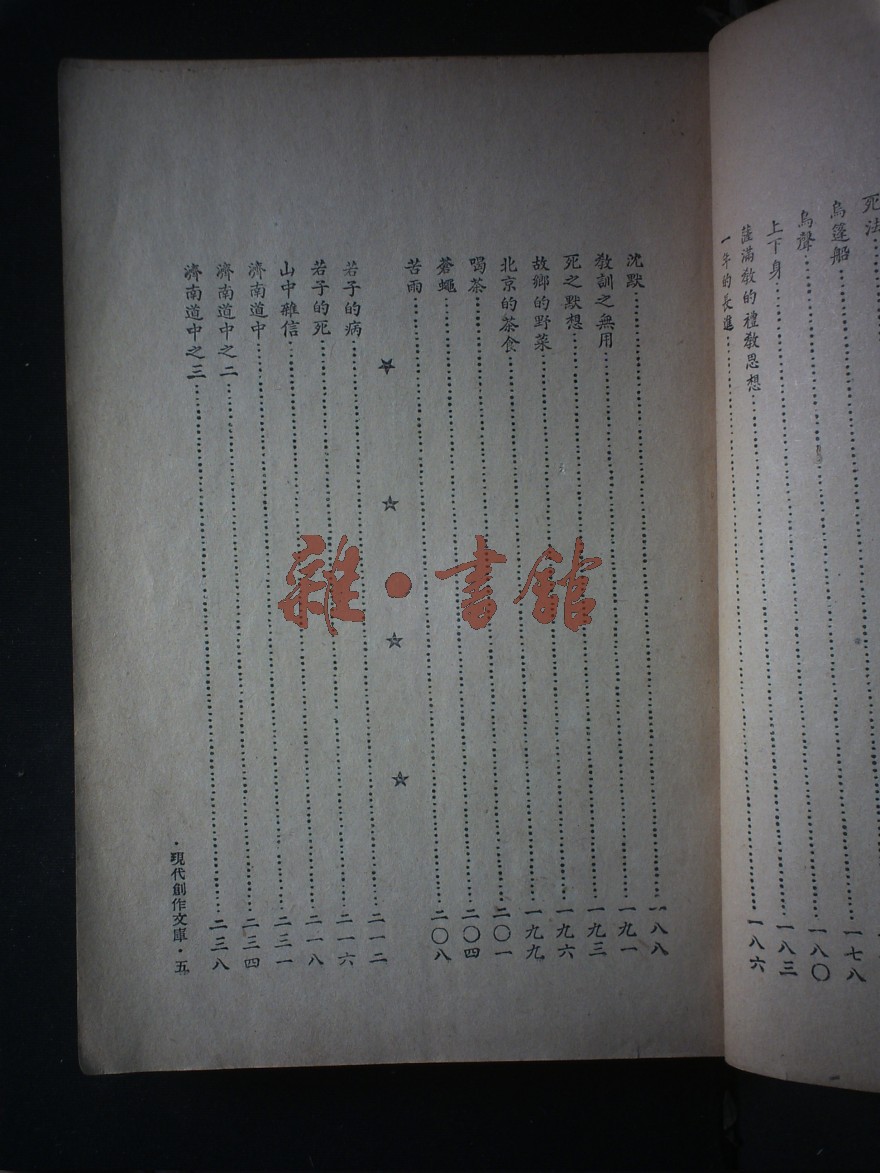 死法……
烏篷船……
鳥聲……一七八
上下身……一八〇
薩滿教的禮教思想……一八三
一年的長進……一八六
沈默……一八八
教訓之無用……一九一
死之默想……一九三
故鄉的野菜……一九六
北京的茶食……一九九
喝茶……二〇一
蒼蠅……二〇四
苦雨……二〇八
若子的病……二一二
若子的死……二一六
山中雜信……二一八
濟南道中……二三一
濟南道中之二……二三四
濟南道中之三……二三八
·現代創作文庫·五
雜·書館